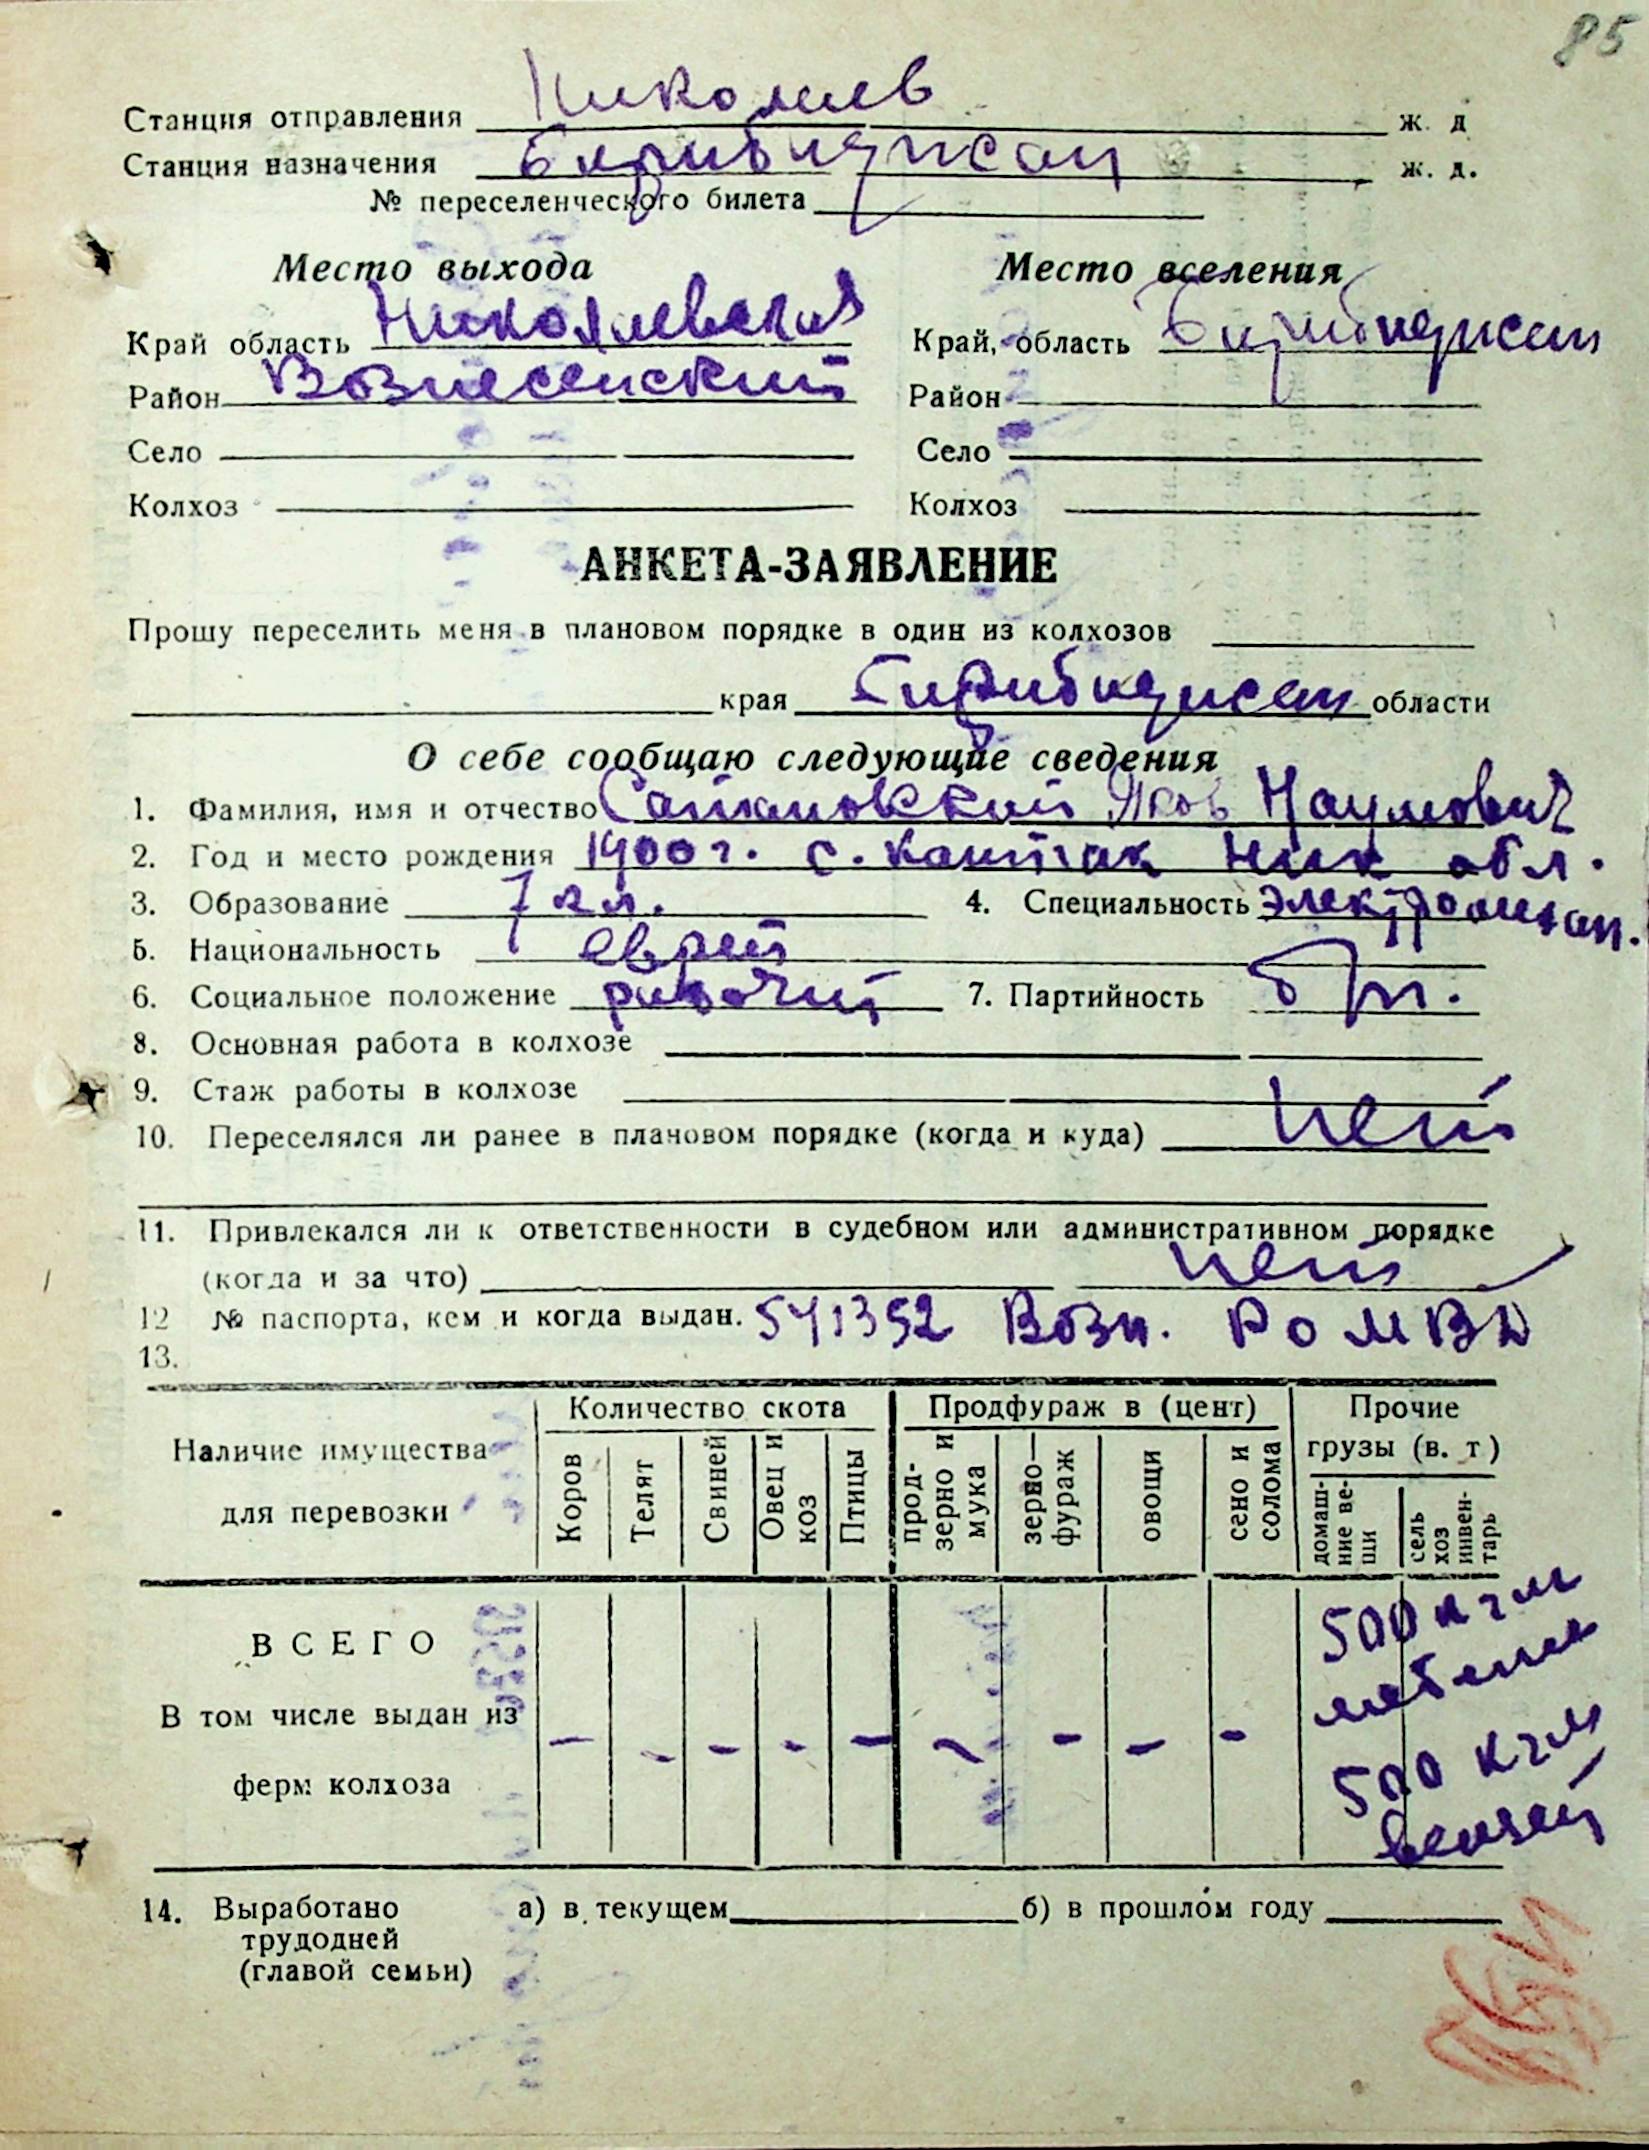 85
Станция отправления Николаев ж. д
Станция назначения Биробиджан ж. д.
№ переселенческого билета
Место выхода Место вселения
Край область Николаевская Край, область Биробиджан
Район Вознесенский Район
Село Село
Колхоз Колхоз
АНКЕТА-ЗАЯВЛЕНИЕ
Прошу переселить меня в плановом порядке в один из колхозов
края Биробиджан области
О себе сообщаю следующие сведения
1. Фамилия, имя и отчество Сатановский Яков Наумович
2. Год и место рождения 1900 г. с. Ник обл.
3. Образование 7 кл. 4. Специальность электромехан.
5. Национальность еврей
6. Социальное положение рабочий 7. Партийность б/п.
8. Основная работа в колхозе
9. Стаж работы в колхозе
10. Переселялся ли ранее в плановом порядке (когда и куда) нет
11. Привлекался ли к ответственности в судебном или административном порядке
(когда и за что) нет
12 № паспорта, кем и когда выдан. 541352 Возн. РО МВД
13.
Наличие имущества для перевозки
Количество скота Продфураж в (цент) Прочие грузы (в. т)
Коров Телят Свиней Овец и коз Птицы прод-зерно и мука зерно—фураж овощи сено и солома домаш-ние ве-щи сель хоз инвен-тарь
ВСЕГО 500 кгм
мебели
В том числе выдан из - - - - - - - - - 500 кгм
ферм колхоза вещей
14. Выработано а) в текущем б) в прошлом году
трудодней
(главой семьи)